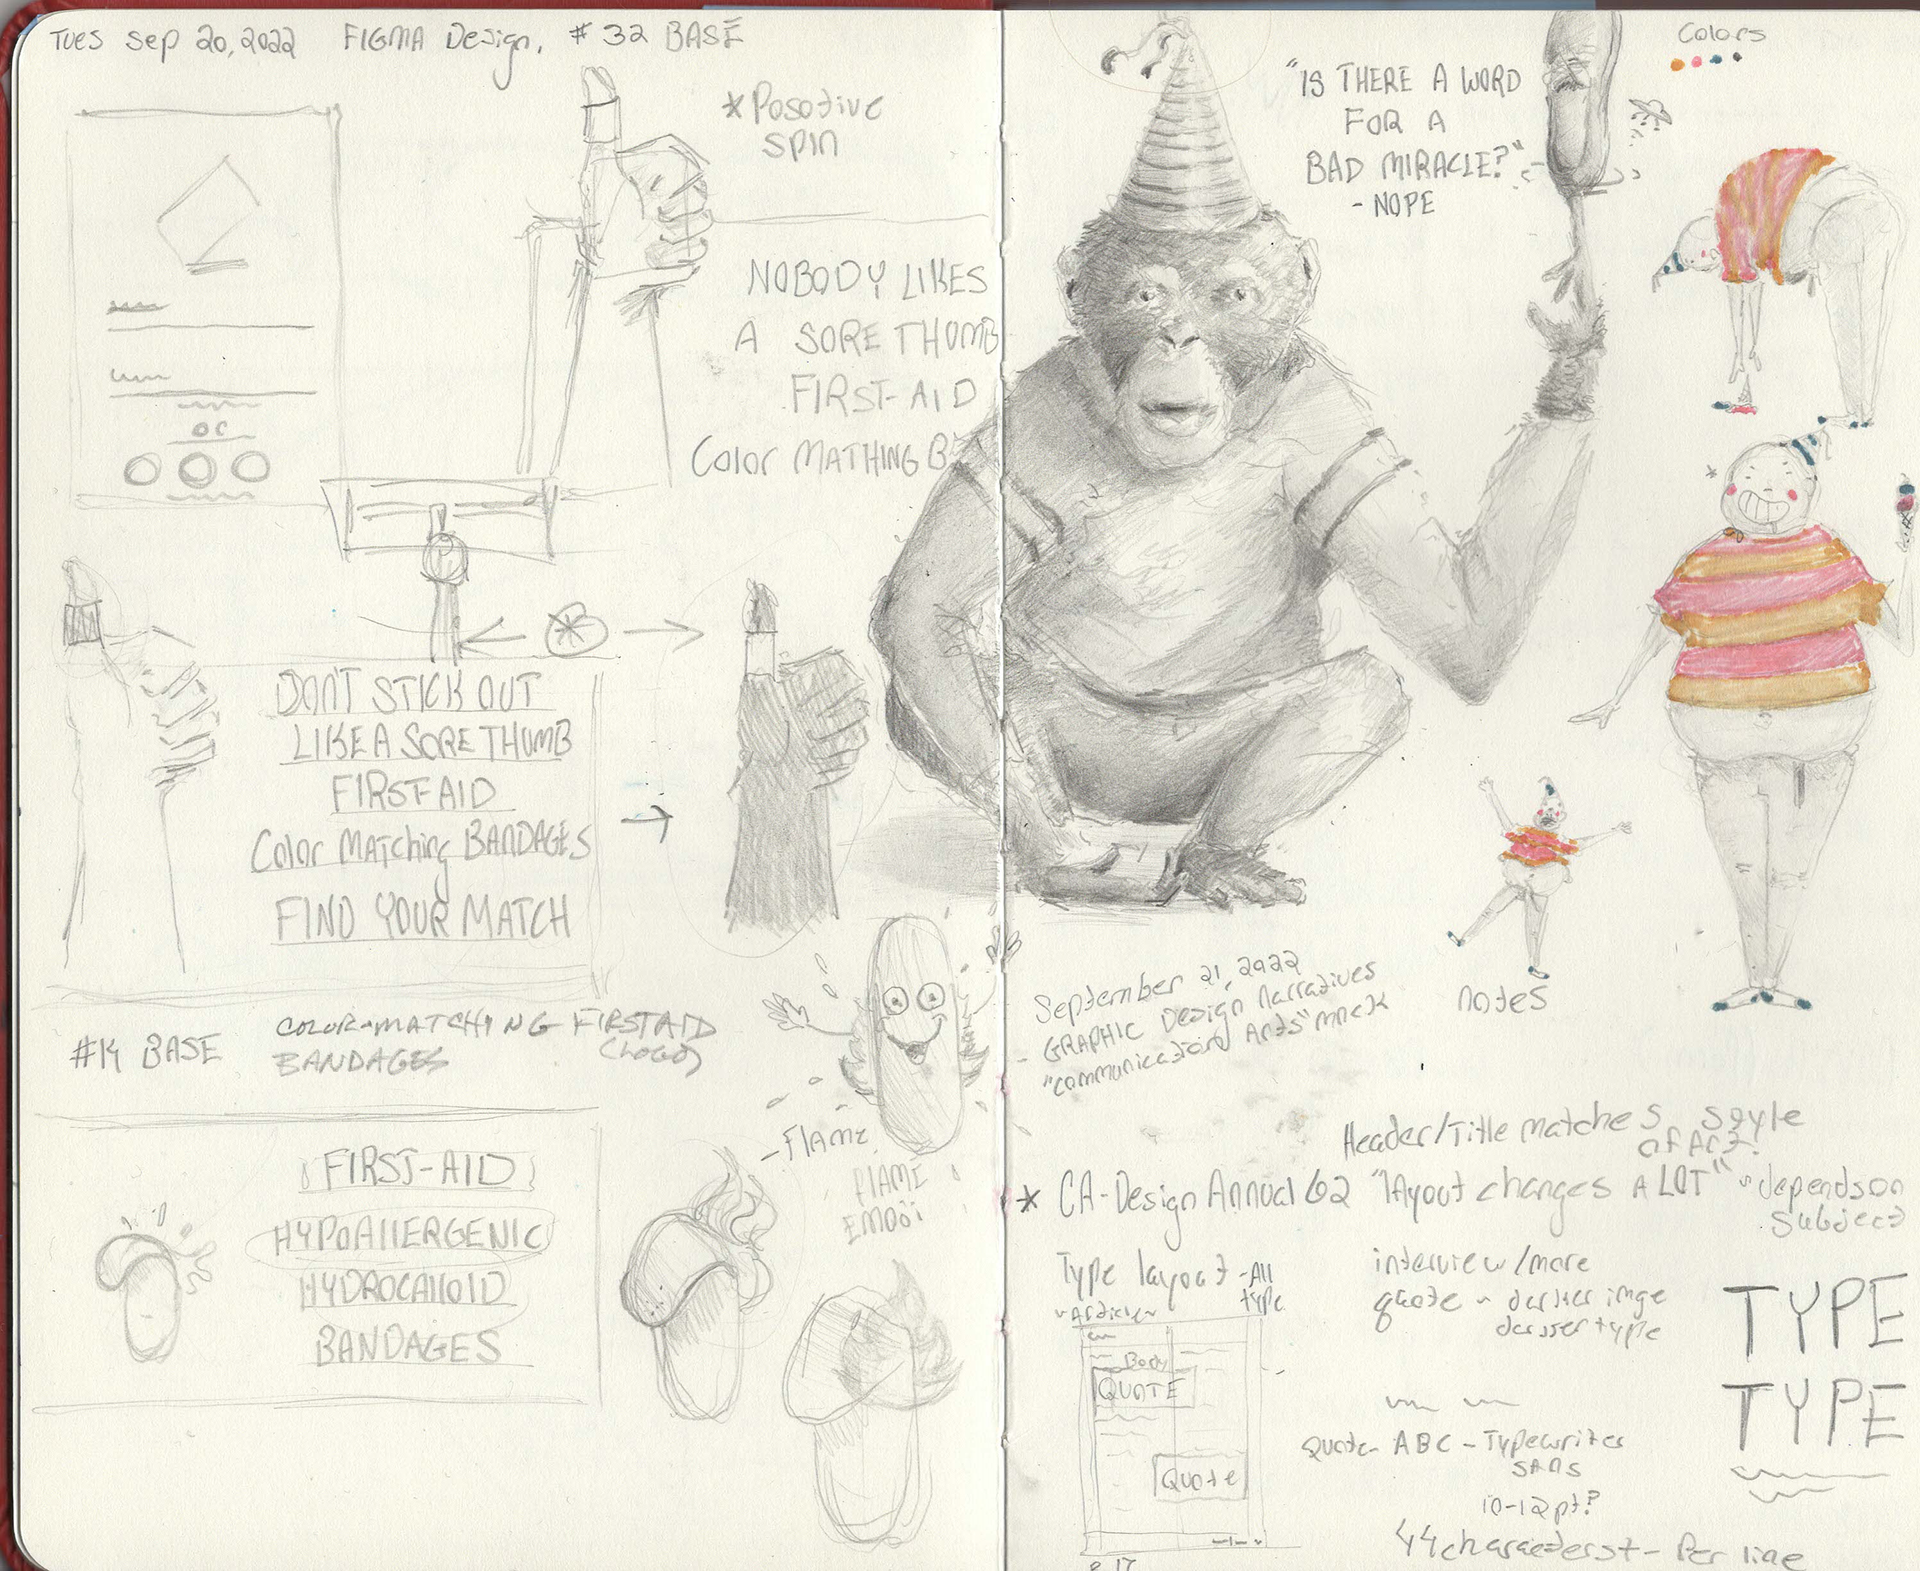 Tues Sep 20, 2022 FIGMA Design, # 32 BASE
*Posotive
spin
NOBODY LIKES
A SORE THUMB
FIRST-AID
Color MATHING
or
P
DON'T STICK OUT
LIKE A SORE THUMB
FIRST-AID
Color Matching BANDAGES
FIND YOUR MATCH
#14 BASE
COLOR-MATCHING FIRST AID
BANDAGES (LOGO)
FIRST-AID
HYPOAllERGENIC
BANDAGES
-Flame
FlAME
EMOJI
"IS THERE A WORD
FOR A
BAD MIRACLE?"
- NOPE
Colors
September 21, 2022
- GRAPHIC Design Narratives
"communication Arts"
notes
Header/Title matches style
of Art.
* CA-Design Annual 62 "layout changes A LOT" ~ depends on
subject
Type layout - All
type
~Article~
Body
QUOTE
Quote
interview/more
quote ~
type
TYPE
TYPE
Quote- ABC - Typewriter
sans
10-12pt?
44 characterst - Per line